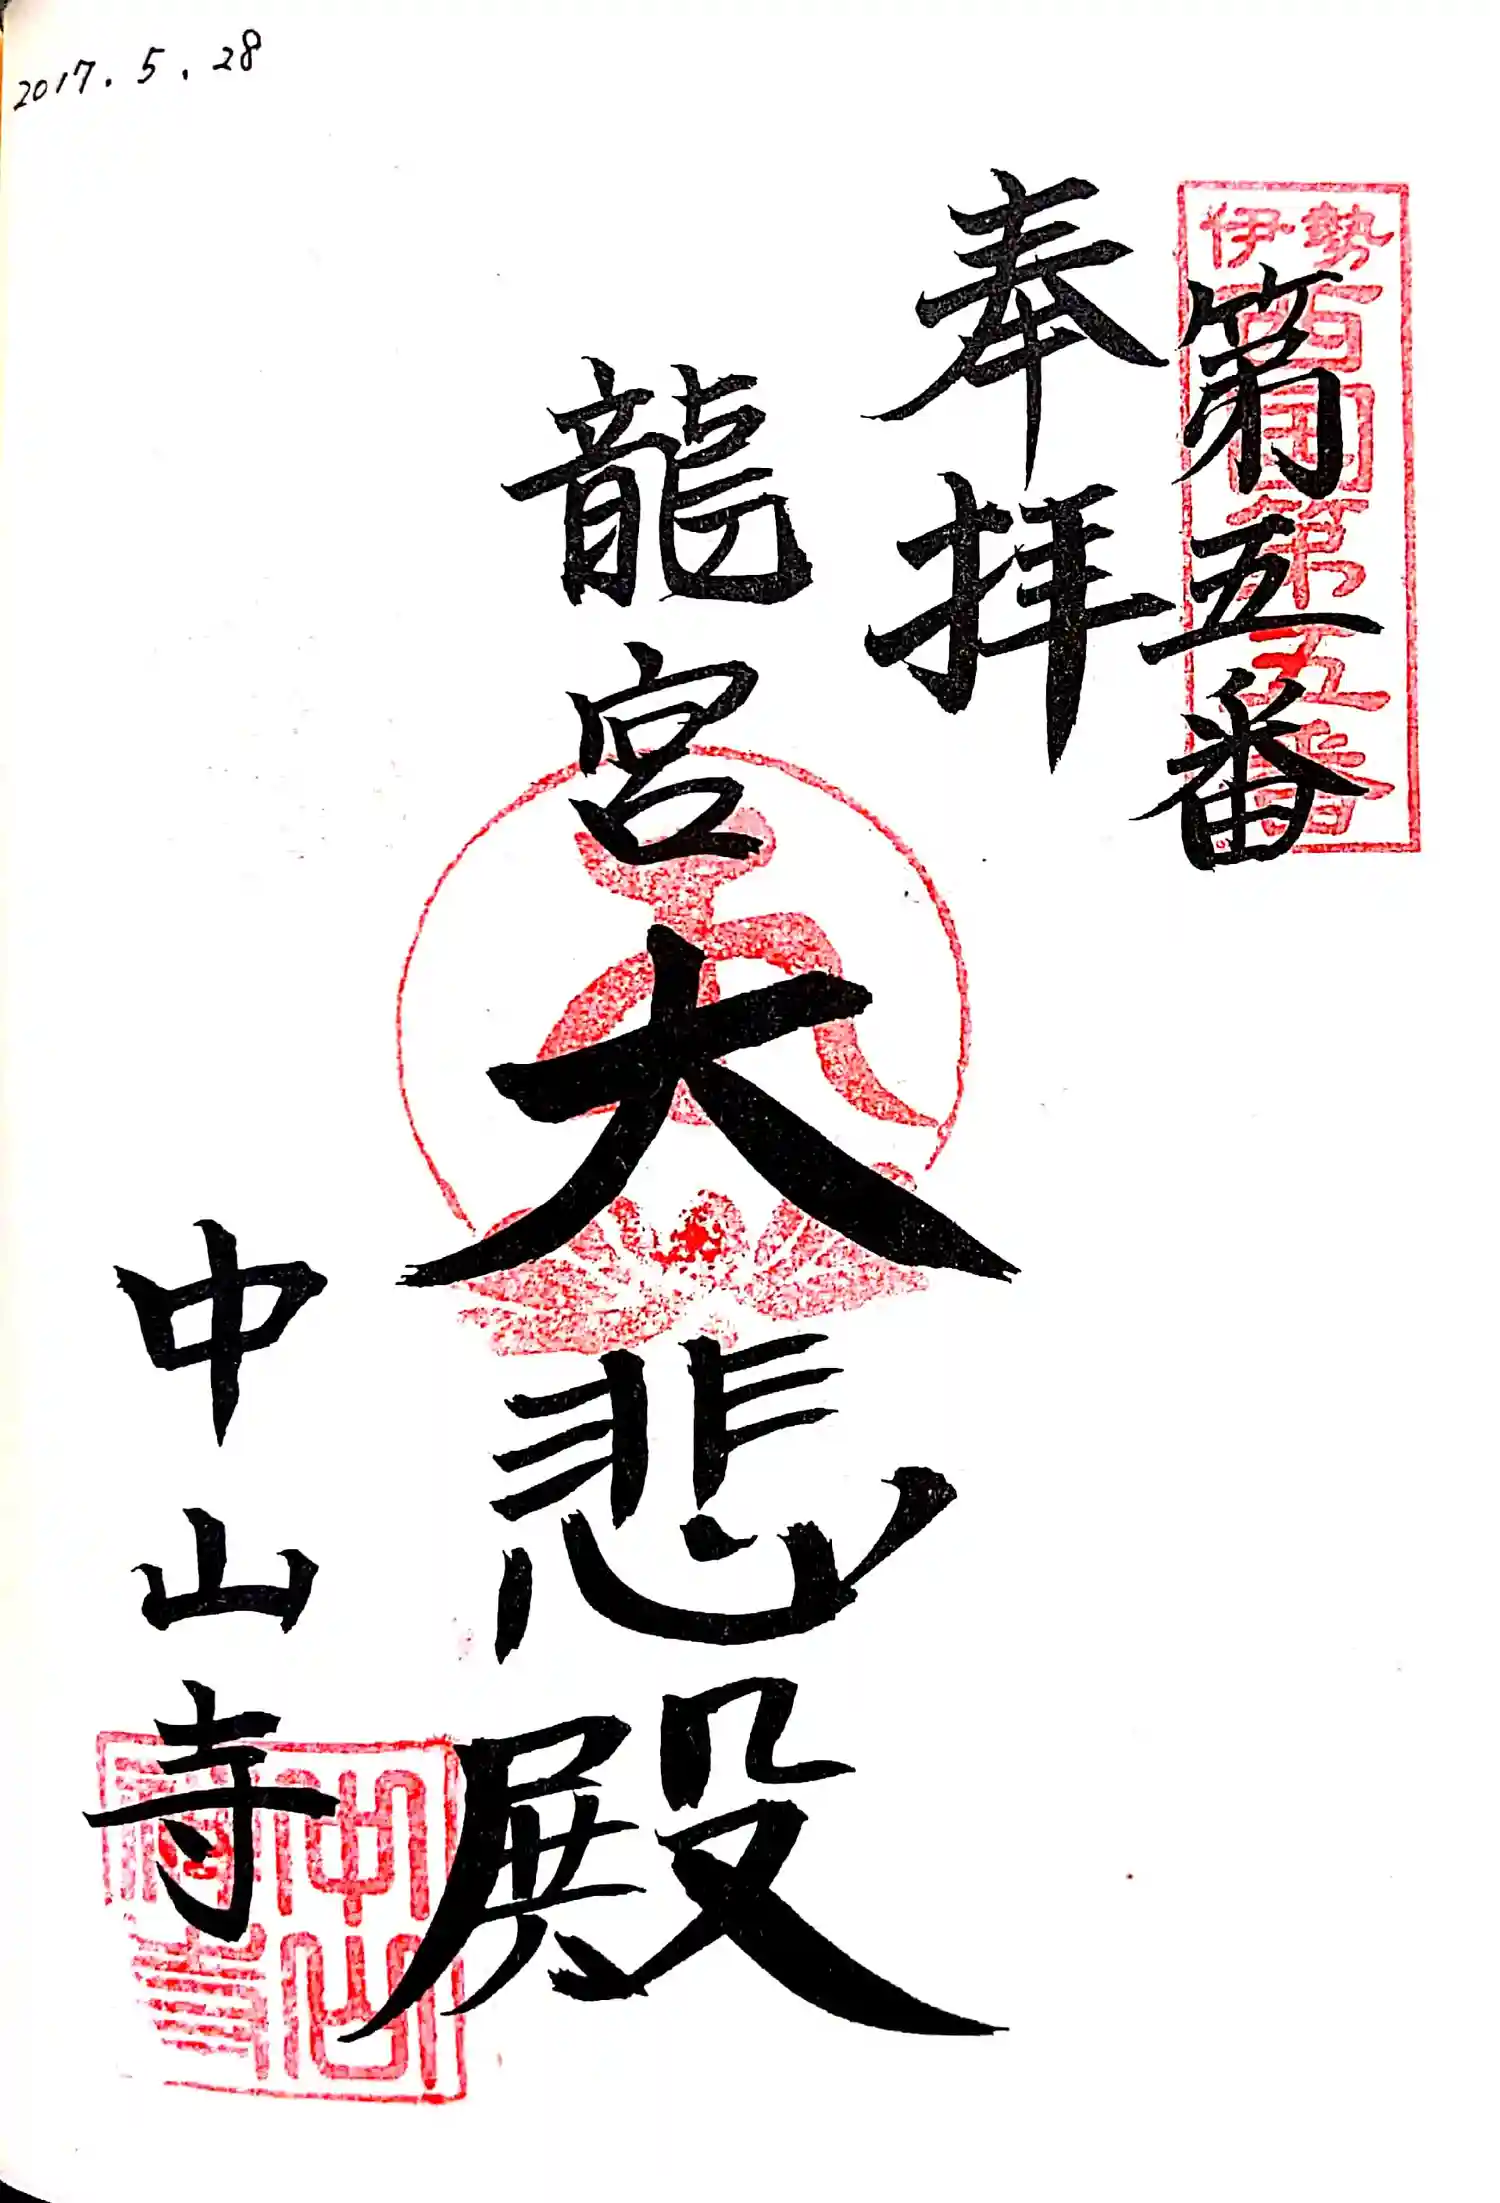 2017.5.28
伊勢
西国第五番
第五番
奉拝
龍宮
大悲殿
中山寺